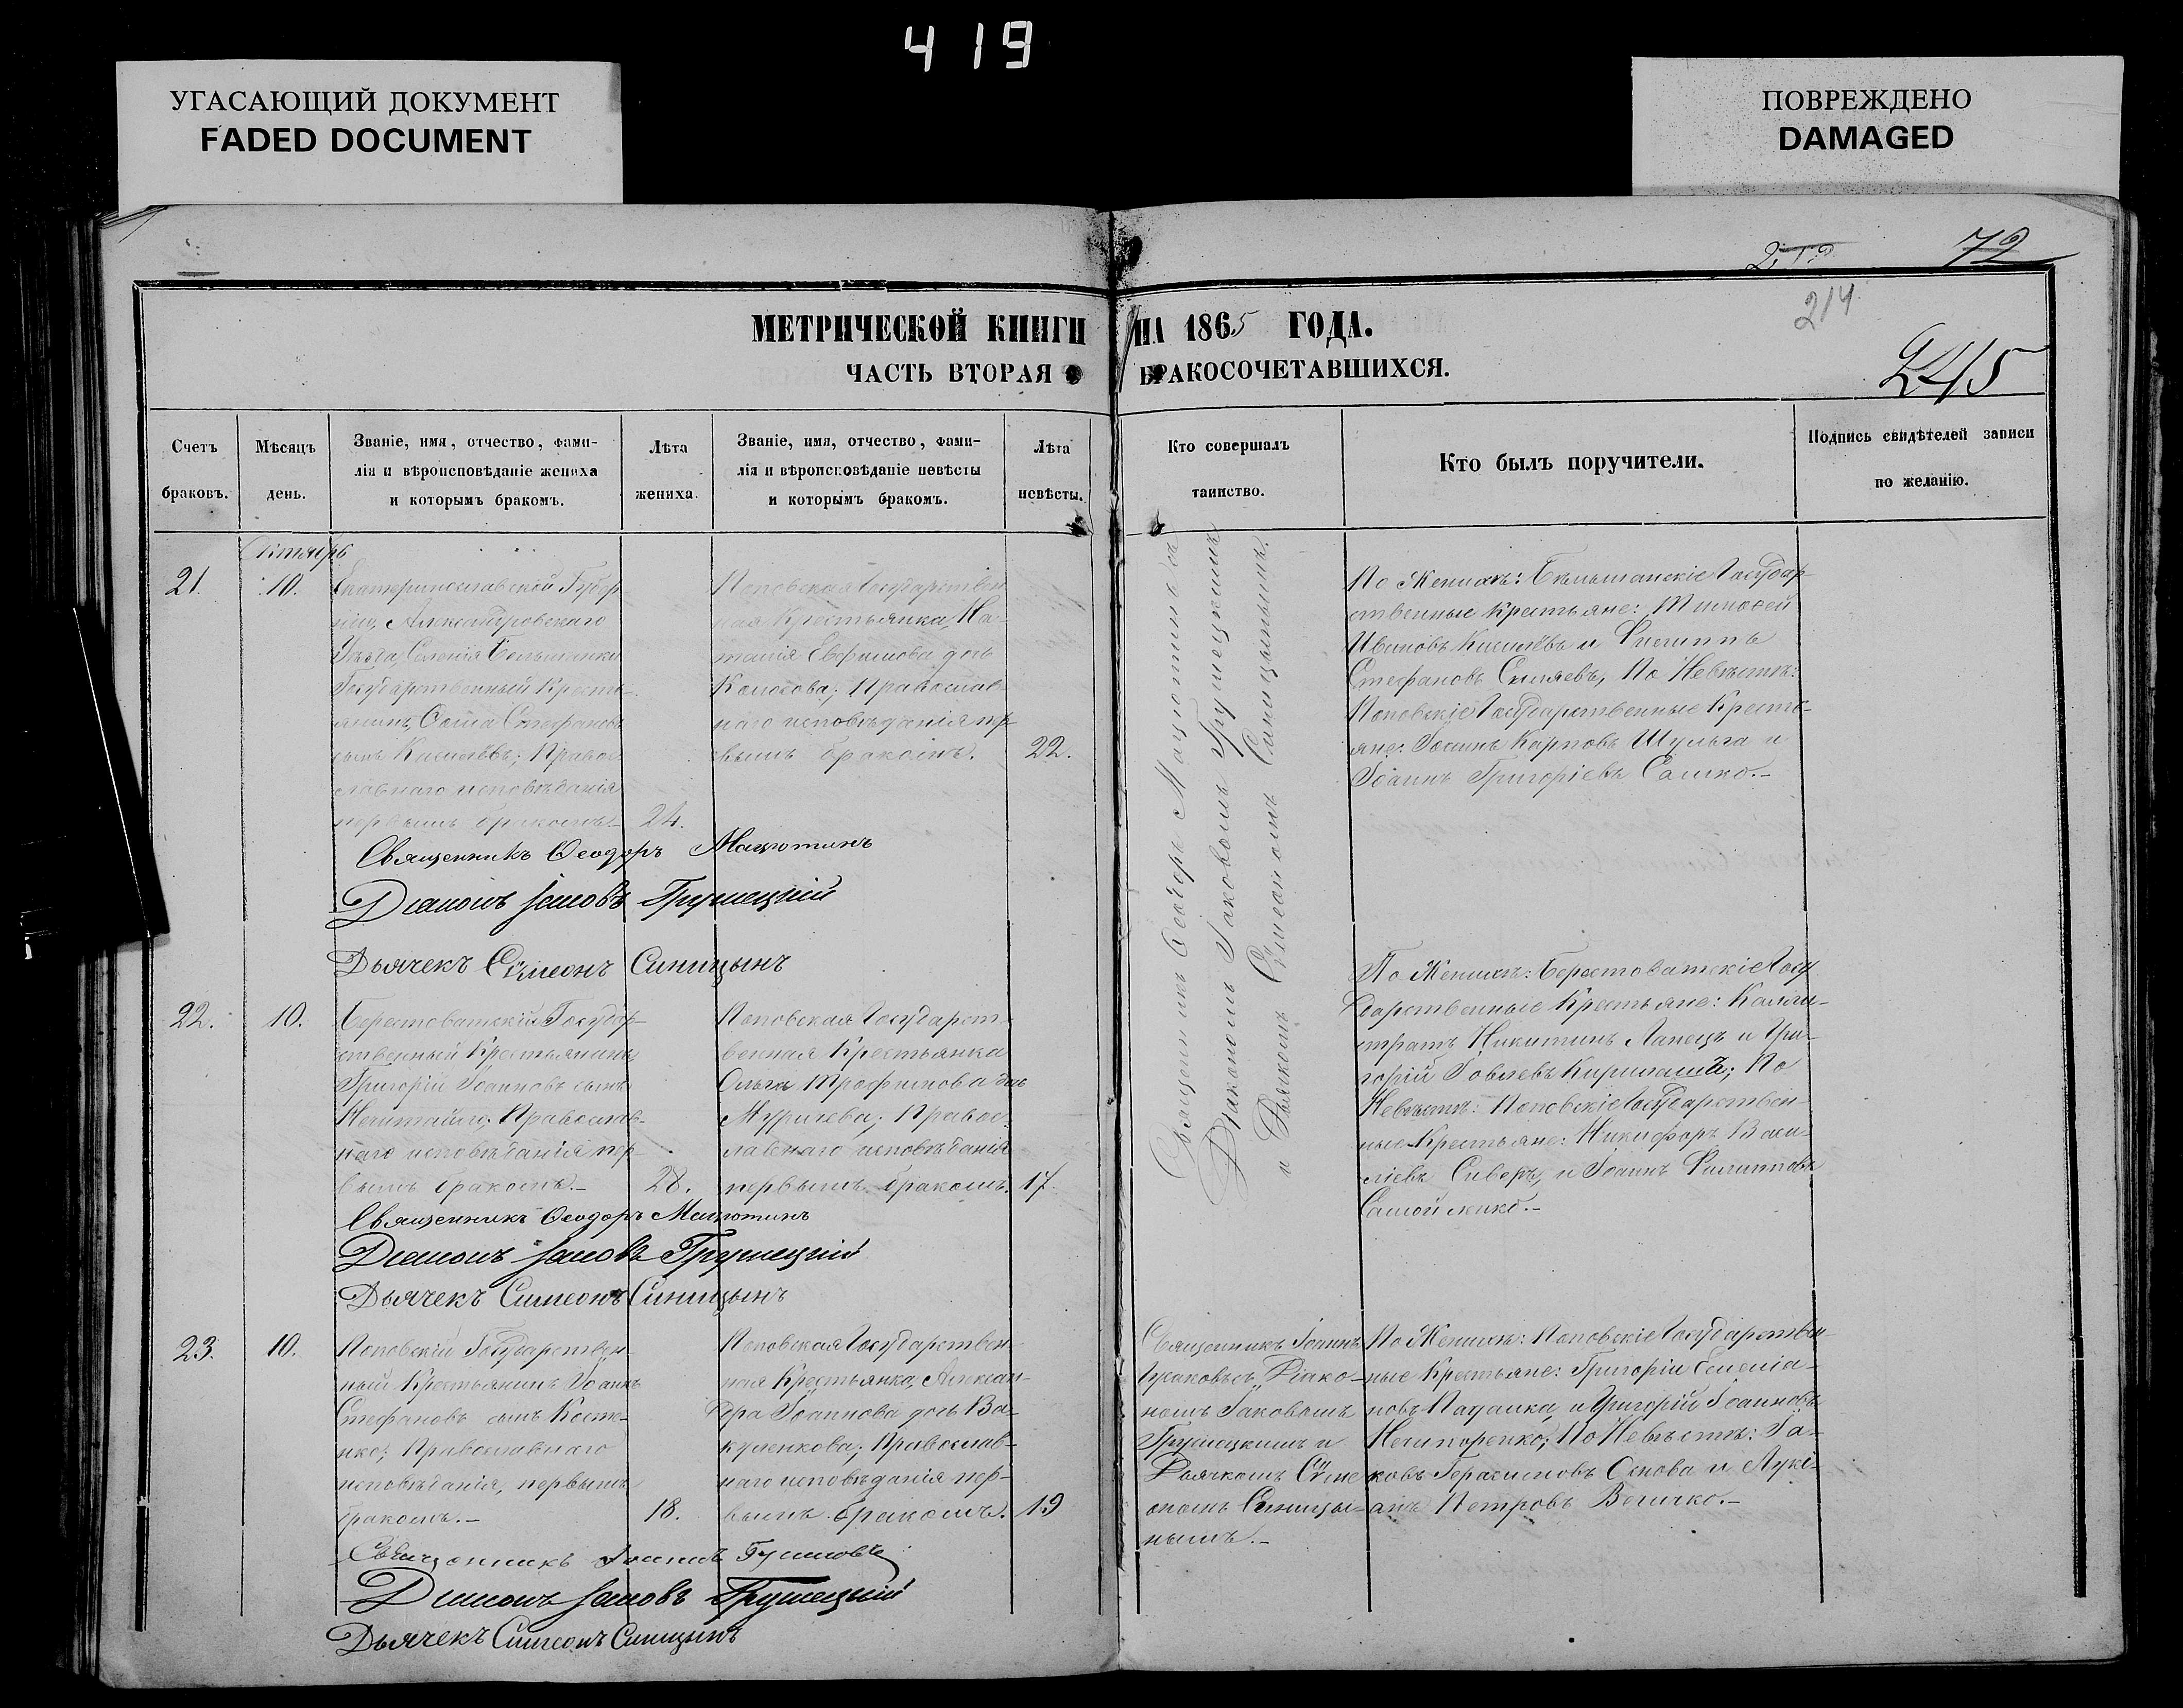 419
УГАСАЮЩИЙ ДОКУМЕНТ
FADED DOCUMENT
ПОВРЕЖДЕНО
DAMAGED
72
214
245
МЕТРИЧЕСКОЙ КНИГИ НА 1865 ГОДА.
ЧАСТЬ ВТОРАЯ О БРАКОСОЧЕТАВШИХСЯ.
Счетъ браковъ.
Мѣсяцъ день.
Званіе, имя, отчество, фами-
лія и вѣроисповѣданіе жениха
и которымъ бракомъ.
Лѣта жениха.
Званіе, имя, отчество, фами-
лія и вѣроисповѣданіе невѣсты
и которымъ бракомъ.
Лѣта невѣсты.
Кто совершалъ
таинство.
Кто былъ поручители.
Подпись свидѣтелей записи
по желанію.
Октябрь
21.
10.
Екатеринославской Губер
ніи, Александровскаго
Уѣзда, Селенія Бельманки
Государственный Кресть-
янинъ, Стефановъ
сынъ Киселевъ; Право-
славнаго исповѣданія
первымъ бракомъ.-
24.
Поповская Государствен
ная Крестьянка, На-
талія Евфимова дочь
Колосова; Православ
наго исповѣданія пер-
вымъ бракомъ.
22.
Священникъ Ѳеодоръ Мацютинъ съ
Діакономъ Іаковомъ Грушецкимъ
и Дьячкомъ Сѵмеономъ Синицынымъ.
По Женихѣ: Бельманскіе Государ-
ственные Крестьяне: Тимоѳей
Ивановъ Киселевъ и Филиппъ
Стефановъ, По Невѣстѣ:
Поповскіе Государственные Кресть-
яне: Іоаннъ Карповъ Шульга и
Іоаннъ Григоріевъ Сашко.-
Священникъ Ѳеодоръ Мацютинъ
Діаконъ Іаковъ Грушецкій
Дьячекъ Сѵмеонъ Синицынъ
22.
10.
Берестоватскій Государ-
ственный Крестьянинъ
Григорій Іоанновъ сынъ
Нечитайло; Православ-
наго исповѣданія пер-
вымъ бракомъ.-
28.
Поповская Государст-
венная Крестьянка
Ольга Трофимова дочь
Муричева; Правос-
лавнаго исповѣданія
первымъ бракомъ.
17.
По Женихѣ: Берестоватскіе Госу
дарственные Крестьяне: Калли-
стратъ Никитинъ Лапецъ и Гри-
горій Іовлевъ; По
Невѣстѣ: Поповскіе Государствен-
ные Крестьяне: Никифоръ Васи-
ліевъ Сиворъ, и Іоаннъ Филипповъ
Самойленко.-
Священникъ Ѳеодоръ Мацютинъ
Діаконъ Іаковъ Грушецкій
Дьячекъ Симеонъ Синицынъ
23.
10.
Поповскій Государствен-
ный Крестьянинъ Іоаннъ
Стефановъ сынъ Косте-
нко; Православнаго
исповѣданія, первымъ
бракомъ.-
18.
Поповская Государствен
ная Крестьянка, Алексан-
дра Іоаннова дочь Ва-
куленкова; Православ-
наго исповѣданія пер-
вымъ бракомъ.
19
Священникъ Іоаннъ
съ Діако-
номъ Іаковомъ
Грушецкимъ и
Дьячкомъ Сѵме
ономъ Синицы-
нымъ.-
По Женихѣ: Поповскіе Государствен-
ные Крестьяне: Григорій Емеліа-
новъ Падалка, и Григорій Іоанновъ
Нечипоренко; По Невѣстѣ: Іа-
ковъ Герасимовъ Основа и Лукі-
анъ Петровъ Величко.-
Священникъ Іоаннъ
Діаконъ Іаковъ Грушецкій
Дьячекъ Симеонъ Синицынъ